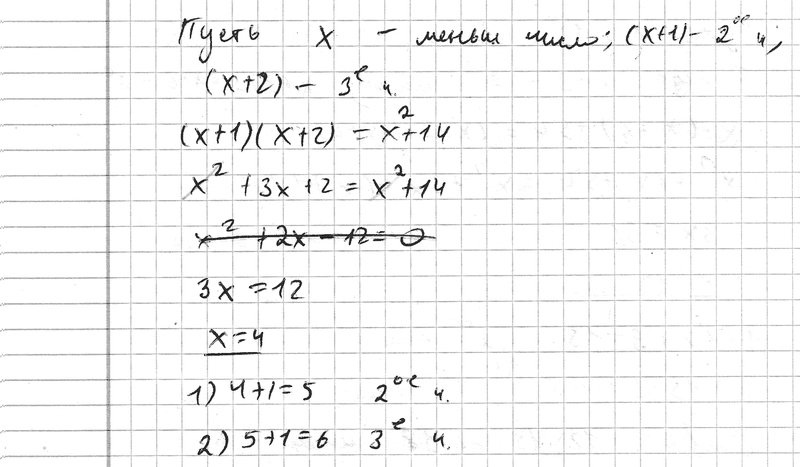 Пусть x - меньш число; (x+1) - 2ое ч,
(x+2) - 3е ч.
(x+1)(x+2) = x²+14
x² + 3x + 2 = x² + 14
x² + 2x - 12 = 0
3x = 12
x = 4
1) 4+1=5 2ое ч.
2) 5+1=6 3е ч.